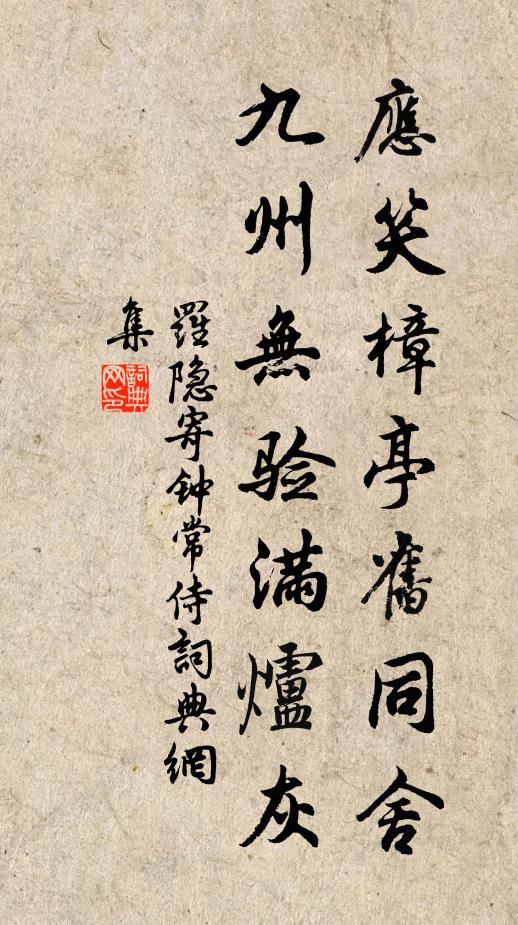 應笑樟亭舊同舍
九州無验滿爐灰
羅隐寄钟常侍詞典網
集
詞典網印